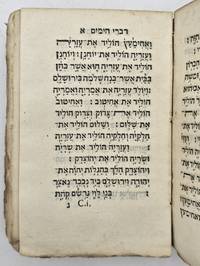 דברי הימים א
וַאֲחִימַעַץ הוֹלִיד אֶת עֲזַרְיָה
וַעֲזַרְיָה הוֹלִיד אֶת יוֹחָנָן׃ וְיוֹחָנָן
הוֹלִיד אֶת עֲזַרְיָה הוּא אֲשֶׁר כִּהֵן
בַּבַּיִת אֲשֶׁר בָּנָה שְׁלֹמֹה בִּירוּשָׁלִָם׃
וַיּוֹלֶד עֲזַרְיָה אֶת אֲמַרְיָה וַאֲמַרְיָה
הוֹלִיד אֶת אֲחִיטוּב׃ וַאֲחִיטוּב
הוֹלִיד אֶת צָדוֹק וְצָדוֹק הוֹלִיד
אֶת שַׁלּוּם׃ וְשַׁלּוּם הוֹלִיד אֶת
חִלְקִיָּה וְחִלְקִיָּה הוֹלִיד אֶת עֲזַרְיָה׃
וַעֲזַרְיָה הוֹלִיד אֶת שְׂרָיָה
וּשְׂרָיָה הוֹלִיד אֶת יְהוֹצָדָק׃
וִיהוֹצָדָק הָלַךְ בְּהַגְלוֹת יְהוָה אֶת
יְהוּדָה וִירוּשָׁלִָם בְּיַד נְבֻכַדנֶאצַּר׃
בְּנֵי לֵוִי גֵּרְשֹׁם קְהָת
C.i.